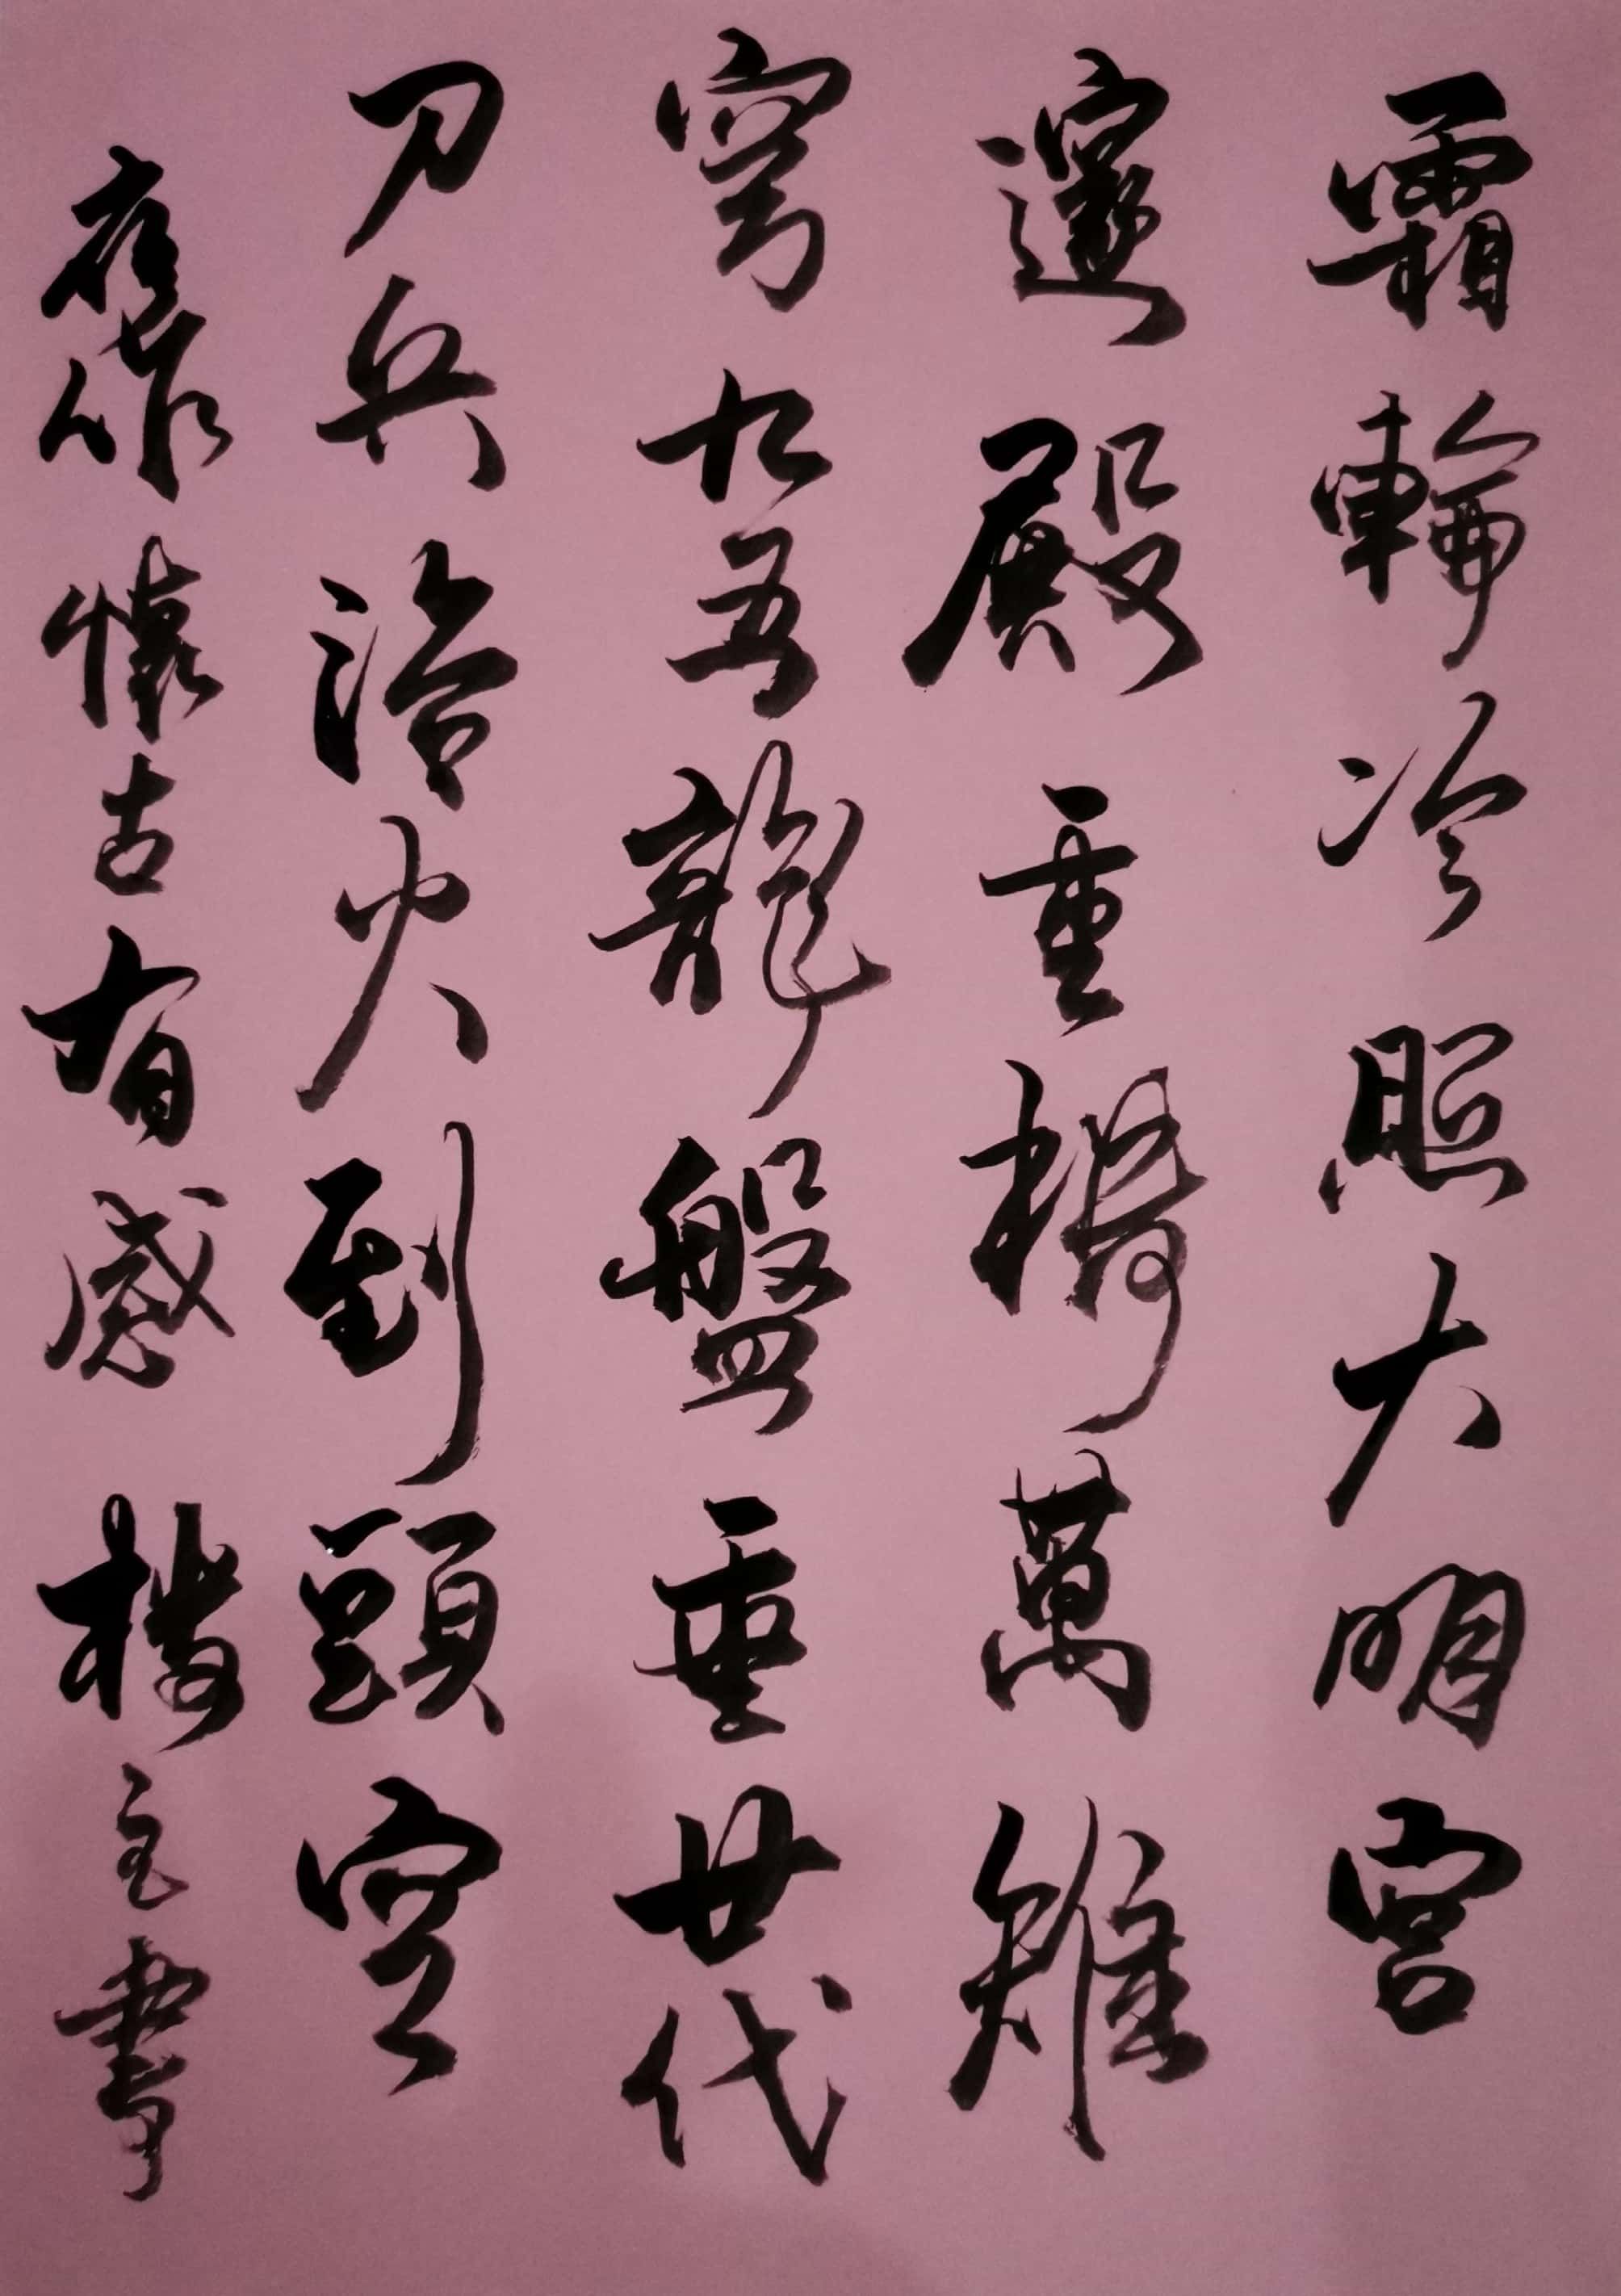 霜輪冷照大明宮
邃殿重樓萬雉
穹九五龍盤垂世代
刀兵浴火到頭空
夜作懷古有感樓主書